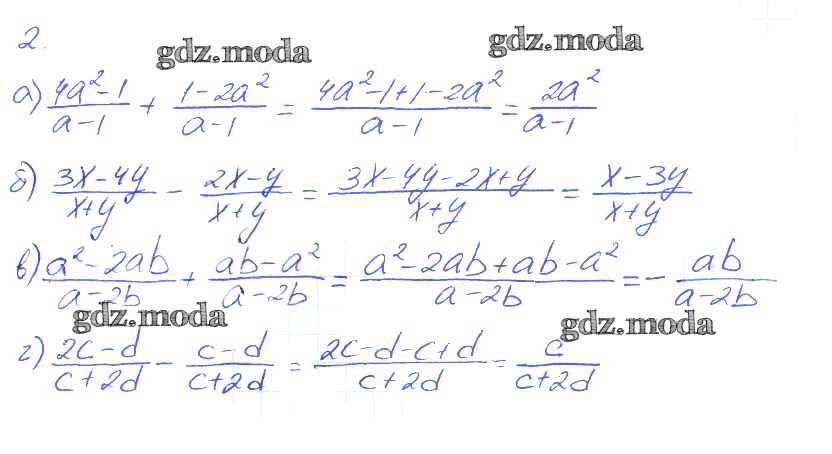 2.
gdz.moda gdz.moda
а) (4a²-1)/(a-1) + (1-2a²)/(a-1) = (4a²-1+1-2a²)/(a-1) = 2a²/(a-1)
б) (3x-4y)/(x+y) - (2x-y)/(x+y) = (3x-4y-2x+y)/(x+y) = (x-3y)/(x+y)
в) (a²-2ab)/(a-2b) + (ab-a²)/(a-2b) = (a²-2ab+ab-a²)/(a-2b) = - ab/(a-2b)
gdz.moda gdz.moda
г) (2c-d)/(c+2d) - (c-d)/(c+2d) = (2c-d-c+d)/(c+2d) = c/(c+2d)